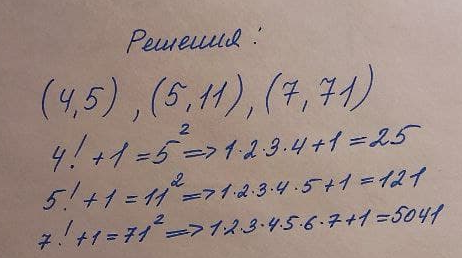 Решения:
(4,5), (5,11), (7,71)
4! + 1 = 5² => 1·2·3·4+1 = 25
5! + 1 = 11² => 1·2·3·4·5+1 = 121
7! + 1 = 71² => 1·2·3·4·5·6·7+1 = 5041